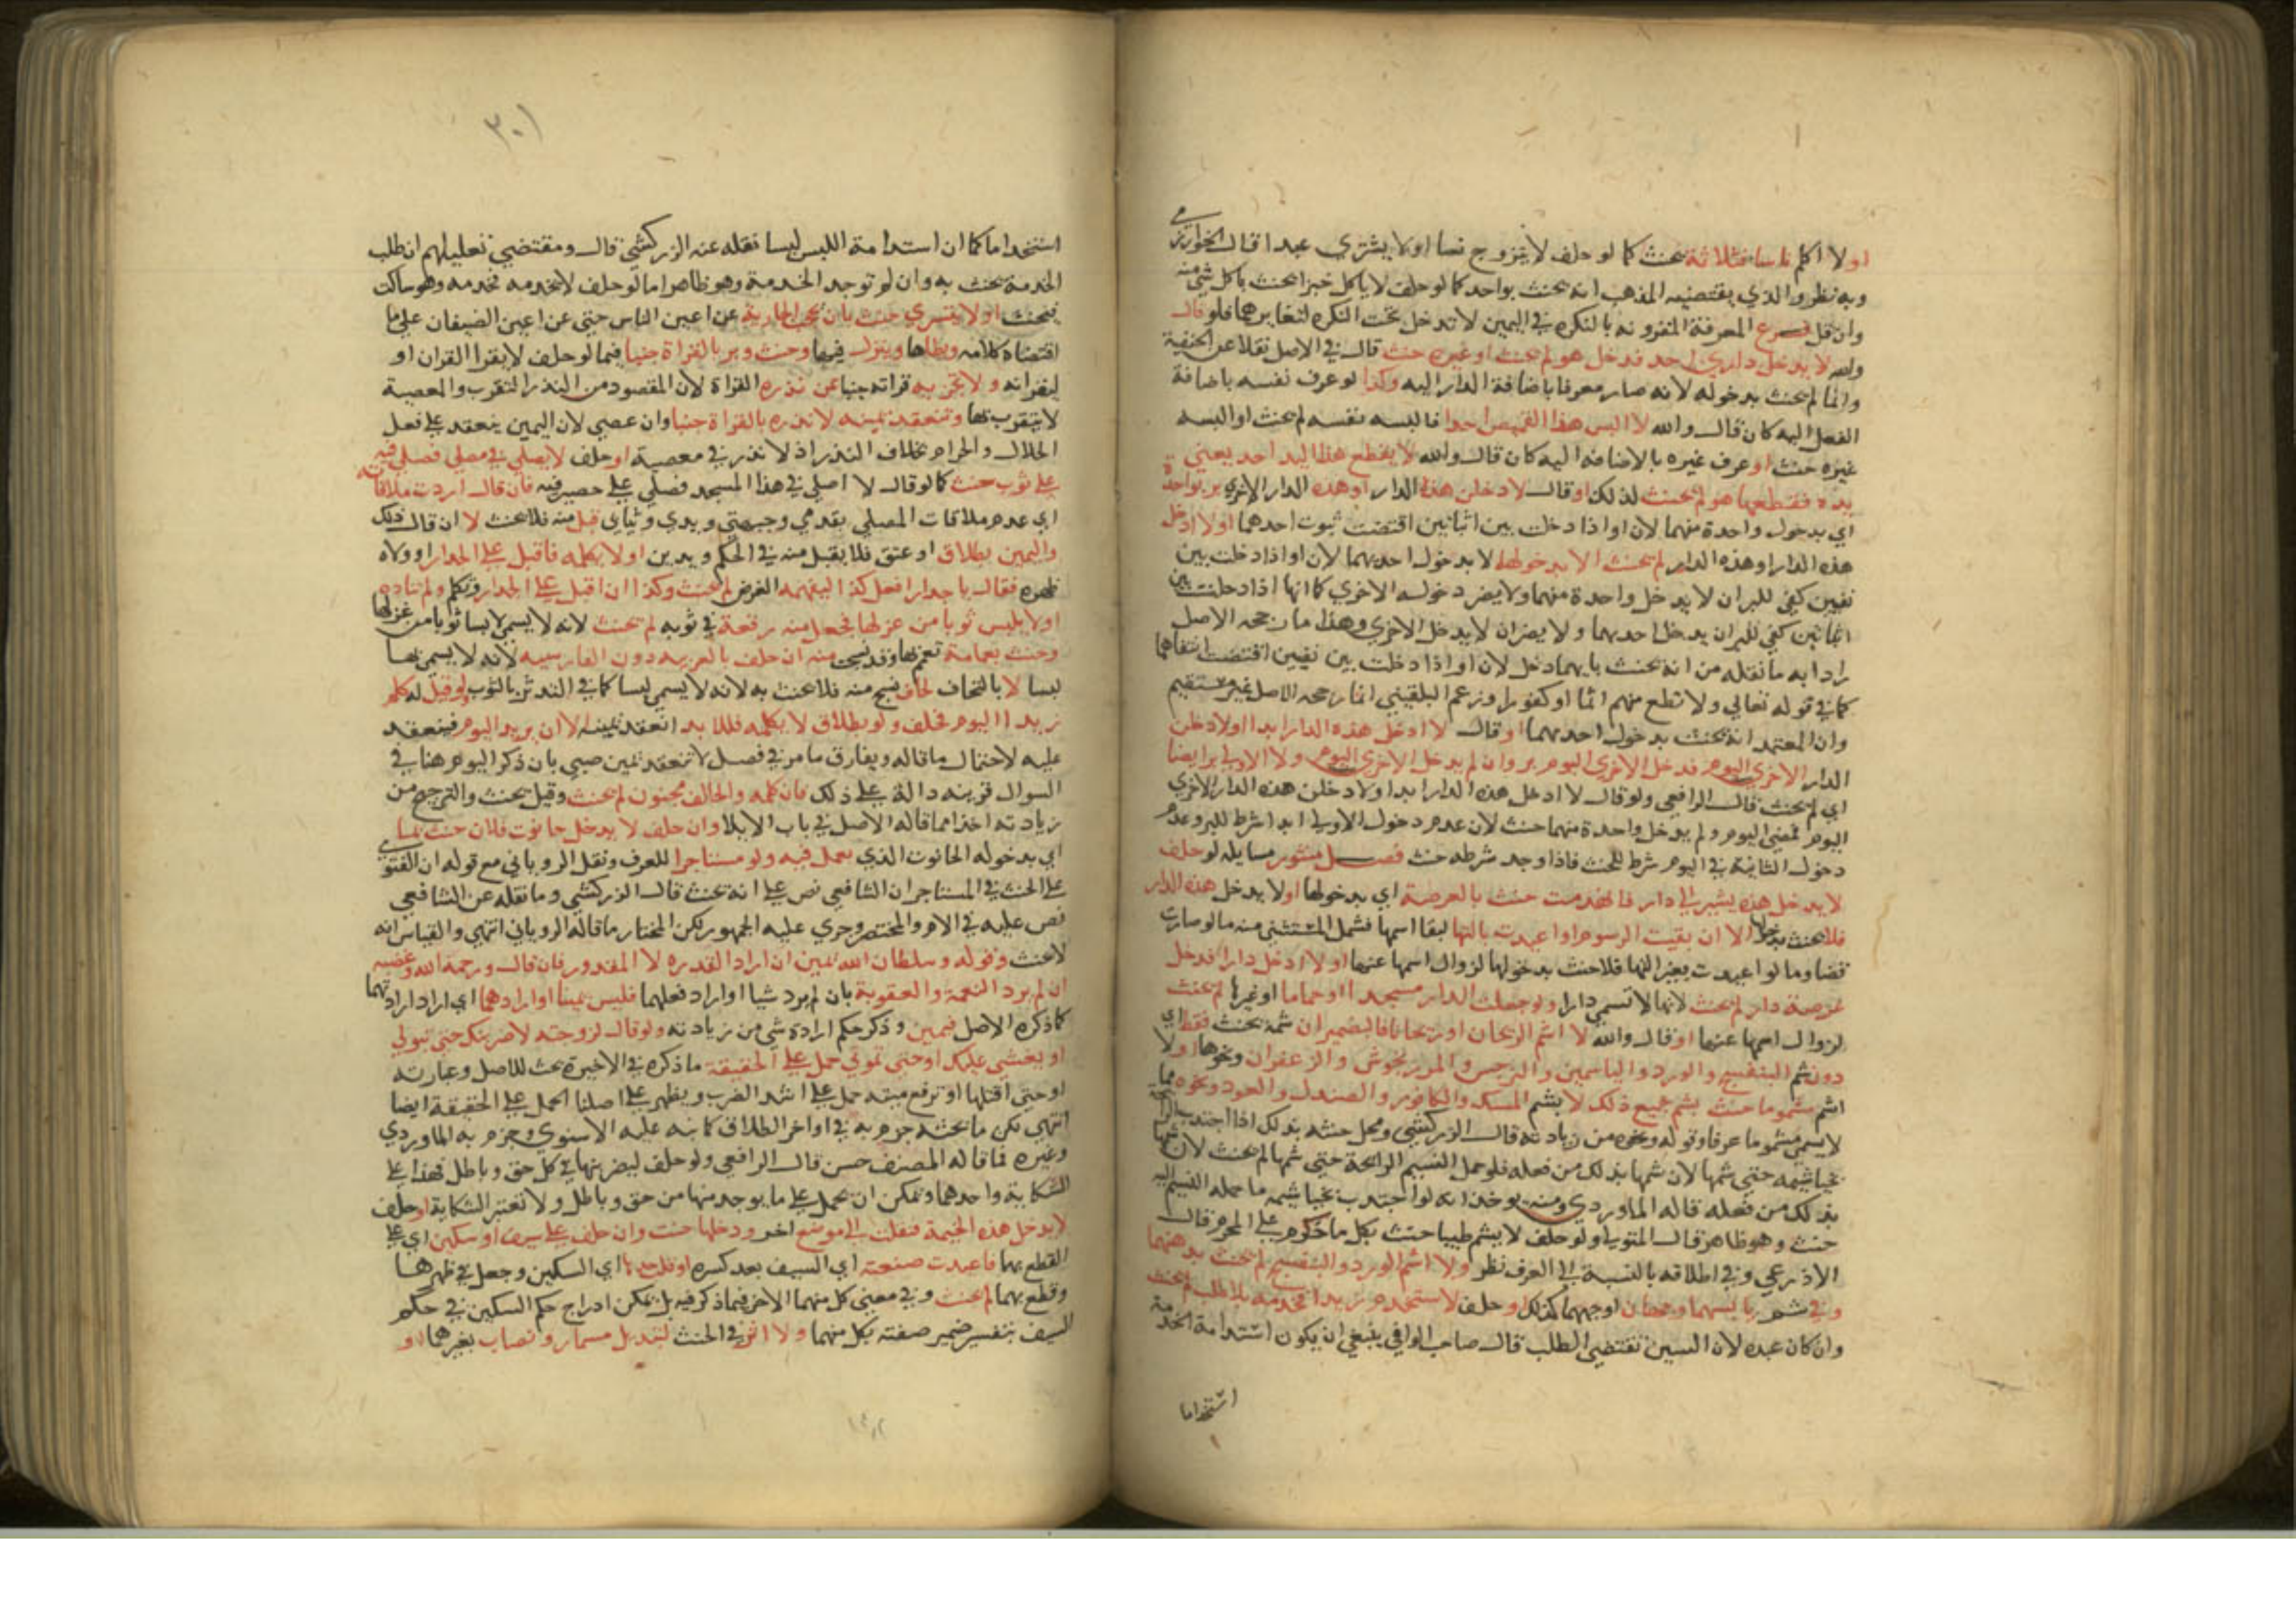 او لا اكلم ناسا فثلاثة يحنث كما لو حلف لا يتزوج نسا او لا يشتري عبدا قال الخوارزمي
وبه نظر والذي يقتضيه المذهب انه يحنث بواحد كما لو حلف لا ياكل خبزا يحنث باكل شي منه
وان قل فرع المعرفة المقرونه بالنكره في اليمين لا تدخل تحت النكره لتغايرهما فلو قال
والله لا يدخل داري احد فدخل هو لم يحنث او غيره حنث قال في الاصل نقلا عن الحنفية
وانما لم يحنث بدخوله لانه صار معرفا باضافة الدار اليه وكذا لو عرف نفسه باضافة
الفعل اليه كان قال والله لا البس هذا القميص احدا فالبسه نفسه لم يحنث او البسه
غيره حنث او عرف غيره بالاضافه اليه كان قال والله لا يقطع هذا اليد احد يعني
يده فقطعها هو لم يحنث لذلك او قال لادخلن هذه الدار او هذه الدار الاخري بر بواحدة
اي بدخول واحدة منهما لان او اذا دخلت بين اثباتين اقتضت ثبوت احدهما او لا ادخل
هذه الدار او هذه الدار لم يحنث الا بدخولهما لا بدخول احديهما لان او اذا دخلت بين
نفيين كفي للبر ان لا يدخل واحدة منهما ولا يضر دخوله الاخري كما انها اذا دخلت بين
اثباتين كفي للبر ان يدخل احديهما ولا يضر ان لا يدخل الاخري وهذا ما رجحه الاصل
رادا به ما نقله من انه يحنث بايهما دخل لان او اذا دخلت بين نفيين اقتضت انتفاهما
كما في قوله تعالي ولا تطع منهم اثما او كفورا وزعم البلقيني انما رجحه الاصل غير مستقيم
وان المعتمد انه يحنث بدخول احديهما او قال لا ادخل هذه الدار ابدا او لادخلن
الدار الاخري اليوم فدخل الاخري اليوم بر وان لم يدخل الاخري اليوم ولا الاولي بر ايضا
اي لم يحنث قال الرافعي ولو قال لا ادخل هذه الدار ابدا ولادخلن هذه الدار الاخري
اليوم فمضي اليوم ولم يدخل واحدة منهما حنث لان عدم دخول الاولي ابدا شرط للبر وعدم
دخول الثانية في اليوم شرط للحنث فاذا وجد شرطه حنث فصل منثور مسايله لو حلف
لا يدخل هذه يشير الي دار فانهدمت حنث بالعرصة اي بدخولها او لا يدخل هذه الدار
فلا يحنث بدخولها الا ان بقيت الرسوم او اعيدت بالتها لبقا اسمها فشمل المستثني منه ما لو صارت
فضا وما لو اعيدت بغير التها فلا حنث بدخولها لزوال اسمها عنها او لا ادخل دارا فدخل
عرصة دار لم يحنث لانها لا تسمي دارا ولو جعلت الدار مسجدا او حماما او غيرها لم يحنث
لزوال اسمها عنها او قال والله لا اشم الريحان او ريحانا فالضميران شمه يحنث فقط اي
دون شم البنفسج والورد والياسمين والنرجس والمرزنجوش والزعفران ونحوها او لا
اشم مشموما حنث بشم جميع ذلك لا بشم المسك والكافور والصندل والعود ونحوه مما
لا يسمي مشموما عرفا وقوله ونحوه من زيادته قال الزركشي ومحل حنثه بذلك اذا اجتذب الرايحة
بخياشيمه حتي شمها لان شمها بذلك من فعله فلو حمل النسيم الرائحة حتي شمها لم يحنث لان شمها
بذلك من فعله قاله الماوردي ومنه يوخذ انه لو اجتذب بخياشيمه ما حمله النسيم اليه
حنث وهو ظاهر قال المتولي ولو حلف لا يشم طيبا حنث بكل ما حكموه علي المحرم قال
الاذرعي وفي اطلاقه بالنسبة الي العرف نظر ولا اشم الورد والبنفسج لم يحنث بدهنهما
وفي شم يابسهما وجهان اوجههما كذلك او حلف لا ستخدم زيدا فخدمه بلا طلب لم يحنث
وان كان عبده لان السين تقتضي الطلب قال صاحب الوافي ينبغي ان يكون استدامة الخدمة
استخداما
٣٠١
استخداما كما ان استدامة اللبس لبسا نقله عنه الزركشي قال ومقتضي تعليلهم ان طلب
الخدمة يحنث به وان لم توجد الخدمة وهو ظاهر اما لو حلف لا يخدمه فخدمه وهو ساكت
فيحنث او لا يتسري حنث بان يحجب الجارية عن اعين الناس حتي عن اعين الضيفان علي ما
اقتضاه كلامه ويطاها وينزل فيها وحنث وبر بالقراة جنبا فيما لو حلف لا يقرا القران او
ليقرانه ولا يجزيه قراته جنبا عن نذره القراة لان المقصود من النذر التقرب والمعصية
لا يتقرب بها وتنعقد يمينه لا نذره بالقراة جنبا وان عصي لان اليمين ينعقد علي فعل
الحلال والحرام بخلاف النذر اذ لا نذر في معصية او حلف لا يصلي في مصلي فصلي فيه
علي ثوب حنث كما لو قال لا اصلي في هذا المسجد فصلي علي حصير فيه فان قال اردت ملاقاته
اي عدم ملاقات المصلي بقدمي وجبهتي ويدي وثيابي قبل منه فلا يحنث لا ان قال ذلك
واليمين بطلاق او عتق فلا يقبل منه في الحكم ويدين او لا يكلمه فاقبل علي الجدار وولاه
ظهره فقال يا جدار افعل كذا ليفهمه الغرض لم يحنث وكذا ان اقبل علي الجدار وتكلم ولم يناده
او لا يلبس ثوبا من غزلها فجعل منه رقعة في ثوبه لم يحنث لانه لا يسمي لابسا ثوبا من غزلها
وحنث بعمامة تعمم بها وقد نسجت منه ان حلف بالعربيه دون الفارسيه لانه لا يسمي بها
لبسا لا بالتحاف لحاف نسج منه فلا يحنث به لانه لا يسمي لبسا كما في التدثر بالثوب ولو قيل له كلم
زيدا اليوم فحلف ولو بطلاق لا يكلمه فللابد انعقد يمينه لا ان يريد اليوم فينعقد
عليه لاحتمال ما قاله ويفارق ما مر في فصل لا تنعقد يمين صبي بان ذكر اليوم هنا في
السوال قرينه دالة علي ذلك فان كلمه والحالف مجنون لم يحنث وقيل يحنث والترجيح من
زيادته اخذا مما قاله الاصل في باب الايلا وان حلف لا يدخل حانوت فلان حنث بما
اي بدخوله الحانوت الذي يعمل فيه ولو مستاجرا للعرف ونقل الروياني مع قوله ان الفتوي
علي الحنث في المستاجر ان الشافعي نص علي انه يحنث قال الزركشي وما نقله عن الشافعي
نص عليه في الام والمختصر وجري عليه الجمهور لكن المختار ما قاله الروياني انتهي والقياس انه
لا يحنث وقوله وسلطان الله يمين ان اراد القدره لا المقدور فان قال ورحمة الله وغضبه
ان لم يرد النعمة والعقوبة بان لم يرد شيا او اراد فعلهما فليس يمينا او ارادهما اي اراد ارادتهما
كما ذكره الاصل فيمين وذكر حكم ارادة شي من زيادته ولو قال لزوجته لاضربنك حتي تبولي
او يغشي عليك او حتي تموتي حمل علي الحقيقة ما ذكره في الاخيرة بحث للاصل وعبارته
او حتي اقتلها او ترفع ميتة حمل علي اشد الضرب ويظهر علي اصلنا الحمل علي الحقيقة ايضا
انتهي لكن ما بحثه جزم به في اواخر الطلاق كما نبه عليه الاسنوي وجزم به الماوردي
وغيره فما قاله المصنف حسن قال الرافعي ولو حلف ليضربنها في كل حق وباطل فهذا علي
الشكاية واحدهما ويمكن ان يحمل علي ما يوجد منها من حق وباطل ولا تعتبر الشكاية او حلف
لا يدخل هذه الخيمة فنقلت الي موضع اخر ودخلها حنث وان حلف علي سيف او سكين اي علي
القطع بهما فاعيدت صنعته اي السيف بعد كسره او قلب حدها اي السكين وجعل في ظهرها
وقطع بهما لم يحنث وفي معني كل منهما الاخر فيما ذكر فيه بل يمكن ادراج حكم السكين في حكم
السيف بتفسير ضمير صنعته بكل منهما ولا اثر في الحنث لتبديل مسمار ونصاب بغيرهما او